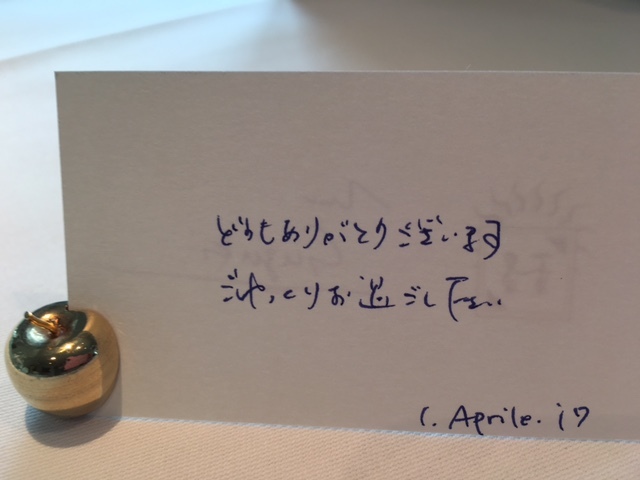 どうもありがとうございます
ごゆっくりお過ごし下さい
1. Aprile. 17